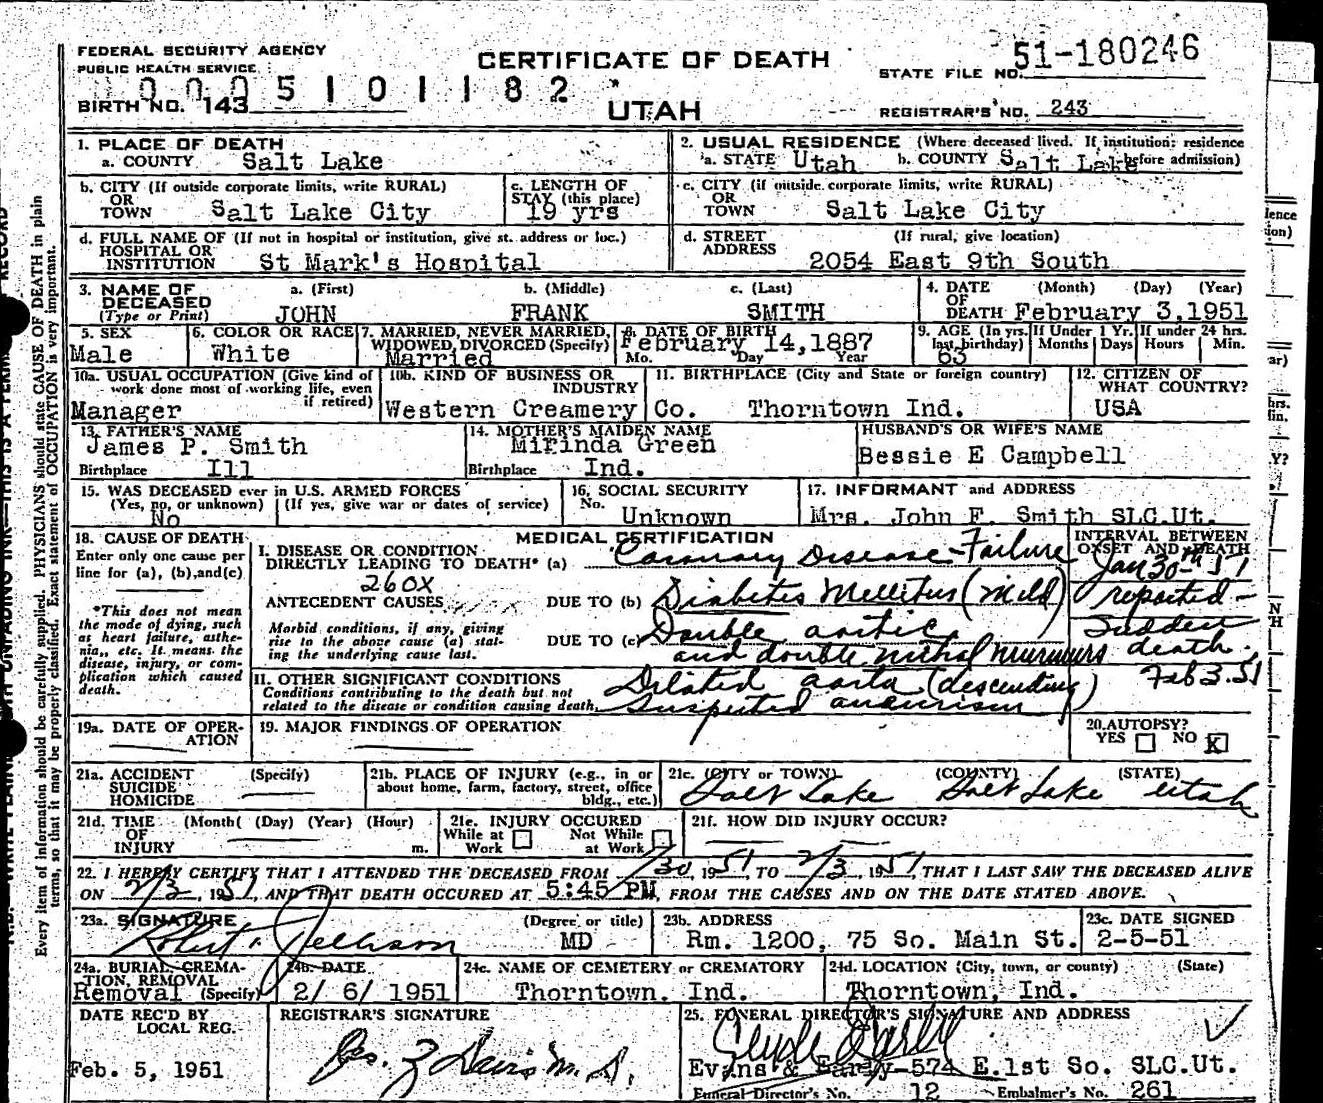 FEDERAL SECURITY AGENCY
PUBLIC HEALTH SERVICE
CERTIFICATE OF DEATH
UTAH
51-180246
STATE FILE NO.
0005101182
BIRTH NO. 143
REGISTRAR'S NO. 243
1. PLACE OF DEATH
a. COUNTY Salt Lake
2. USUAL RESIDENCE (Where deceased lived. If institution: residence before admission)
a. STATE Utah b. COUNTY Salt Lake
b. CITY (If outside corporate limits, write RURAL)
OR
TOWN Salt Lake City
c. LENGTH OF
STAY (this place)
19 yrs
c. CITY (if outside corporate limits, write RURAL)
OR
TOWN Salt Lake City
d. FULL NAME OF (If not in hospital or institution, give st. address or loc.)
HOSPITAL OR
INSTITUTION St Mark's Hospital
d. STREET (If rural, give location)
ADDRESS
2054 East 9th South
3. NAME OF DECEASED
(Type or Print)
a. (First) b. (Middle) c. (Last)
JOHN FRANK SMITH
4. DATE (Month) (Day) (Year)
OF
DEATH February 3,1951
5. SEX
Male
6. COLOR OR RACE
White
7. MARRIED, NEVER MARRIED,
WIDOWED, DIVORCED (Specify)
Married
8. DATE OF BIRTH
February 14,1887
Mo. Day Year
9. AGE (In yrs. last birthday)
63
If Under 1 Yr. If under 24 hrs.
Months Days Hours Min.
10a. USUAL OCCUPATION (Give kind of
work done most of working life, even
if retired)
Manager
10b. KIND OF BUSINESS OR
INDUSTRY
Western Creamery Co.
11. BIRTHPLACE (City and State or foreign country)
Thorntown Ind.
12. CITIZEN OF
WHAT COUNTRY?
USA
13. FATHER'S NAME
James P. Smith
Birthplace Ill
14. MOTHER'S MAIDEN NAME
Mirinda Green
Birthplace Ind.
HUSBAND'S OR WIFE'S NAME
Bessie E Campbell
15. WAS DECEASED ever in U.S. ARMED FORCES
(Yes, no, or unknown) (If yes, give war or dates of service)
No
16. SOCIAL SECURITY
No.
Unknown
17. INFORMANT and ADDRESS
Mrs. John F. Smith SLC.Ut.
18. CAUSE OF DEATH
Enter only one cause per
line for (a), (b), and (c)
*This does not mean
the mode of dying, such
as heart failure, asthe-
nia, etc. It means the
disease, injury, or com-
plication which caused
death.
MEDICAL CERTIFICATION
I. DISEASE OR CONDITION
DIRECTLY LEADING TO DEATH* (a) Coronary Disease-Failure
260X
ANTECEDENT CAUSES DUE TO (b) Diabetes Mellitus (mild)
Morbid conditions, if any, giving
rise to the above cause (a) stat-
ing the underlying cause last.
DUE TO (c) Double aortic
and double mitral murmurs
II. OTHER SIGNIFICANT CONDITIONS
Conditions contributing to the death but not
related to the disease or condition causing death.
Dilated aorta (descending)
Suspected aneurism
INTERVAL BETWEEN
ONSET AND DEATH
Jan 30th 51
reported-
Sudden
death.
Feb 3.51
19a. DATE OF OPER-
ATION
19. MAJOR FINDINGS OF OPERATION
20. AUTOPSY?
YES NO X
21a. ACCIDENT (Specify)
SUICIDE
HOMICIDE
21b. PLACE OF INJURY (e.g., in or
about home, farm, factory, street, office
bldg., etc.)
21c. (CITY or TOWN) (COUNTY) (STATE)
Salt Lake Salt Lake Utah
21d. TIME (Month) (Day) (Year) (Hour)
OF
INJURY m.
21e. INJURY OCCURED
While at Work Not While at Work
21f. HOW DID INJURY OCCUR?
22. I HEREBY CERTIFY THAT I ATTENDED THE DECEASED FROM 1/30, 1951, TO 2/3, 1951, THAT I LAST SAW THE DECEASED ALIVE
ON 2/3, 1951, AND THAT DEATH OCCURED AT 5:45 PM, FROM THE CAUSES AND ON THE DATE STATED ABOVE.
23a. SIGNATURE (Degree or title)
Robert Jellison MD
23b. ADDRESS
Rm. 1200, 75 So. Main St.
23c. DATE SIGNED
2-5-51
24a. BURIAL, CREMA-
TION, REMOVAL
Removal (Specify)
24b. DATE
2/ 6/ 1951
24c. NAME OF CEMETERY or CREMATORY
Thorntown, Ind.
24d. LOCATION (City, town, or county) (State)
Thorntown, Ind.
DATE REC'D BY
LOCAL REG.
Feb. 5, 1951
REGISTRAR'S SIGNATURE
25. FUNERAL DIRECTOR'S SIGNATURE AND ADDRESS
Evans & Early-574 E.1st So. SLC.Ut.
Funeral Director's No. 12 Embalmer's No. 261
Every item of information should be carefully supplied. PHYSICIANS should state CAUSE OF DEATH in plain
terms, so that it may be properly classified. Exact statement of OCCUPATION is very important.